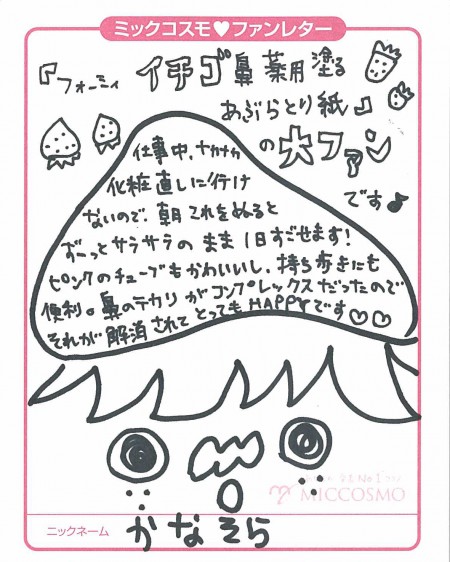 ミックコスモ♥ファンレター
『フォーミィ イチゴ鼻 薬用 塗る
あぶらとり紙』
の大ファン
です♪
仕事中、ナカナカ
化粧直しに行け
ないので、朝これをぬると
ずーっとサラサラのまま1日すごせます!
ピンクのチューブもかわいいし、持ち歩きにも
便利。鼻のテカリがコンプレックスだったので
それが解消されてとってもHAPPYです♡♡
MICCOSMO
ニックネーム
かなそら